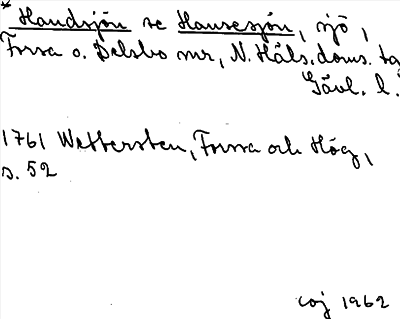 * Handsjön se Hansesjön, sjö,
Forsa o. Delsbo snr, N. Häls. doms. tg
Gävl. l.
1761 Wettersten, Forsa och Hög,
s. 52
coj 1962